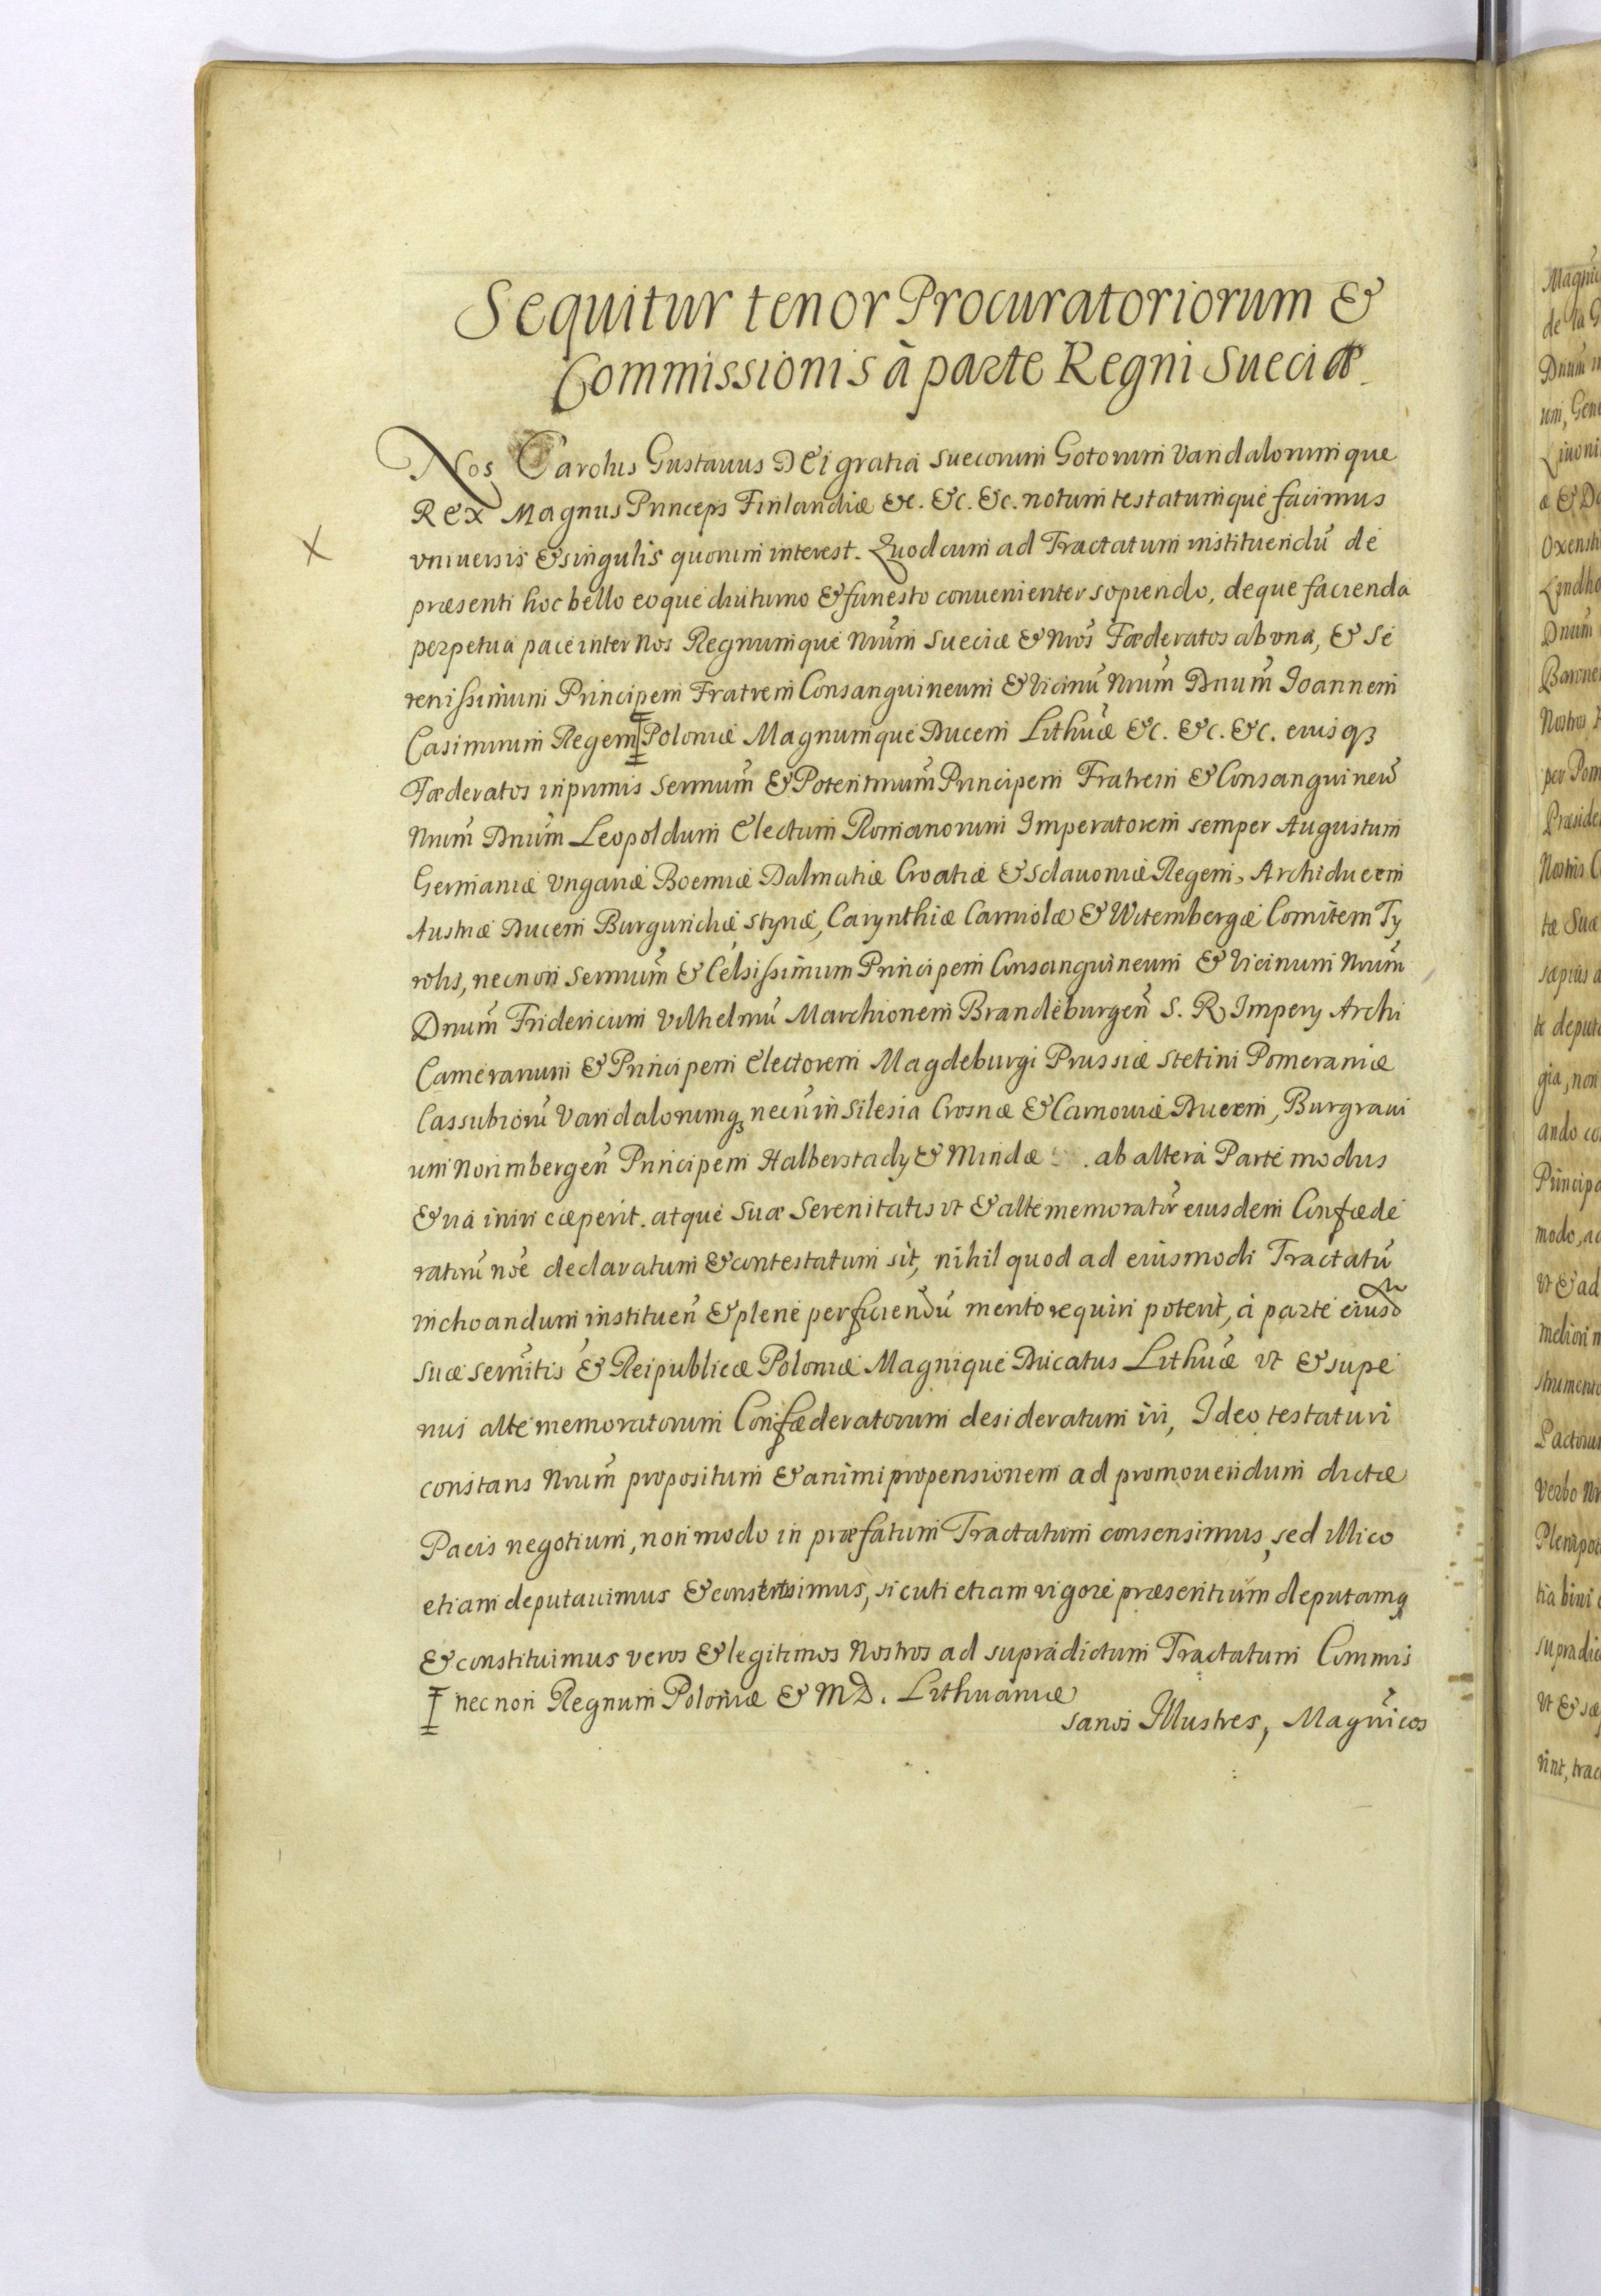 Sequitur tenor Procuratoriorum &
Commissionis à parte Regni Sueciæ.
Nos Carolus Gustauus DEI gratiá Suecorum Gotorum Vandalorumque
Rex Magnus Princeps Finlandiæ &c. &c. &c. notum testatumque facimus
vniuersis & singulis quorum interest. Quod cum ad Tractatum instituendū de
præsenti hoc bello eoque diuturno & funesto conuenienter sopiendo, deque facienda
perpetua pace inter Nos Regnumque Nrūm Sueciæ & Nrōs Fæderatos ab vna, & Se
renissimum Principem Fratrem Consanguineum & Vicinū Nrūm Dnūm Joannem
Casimirum Regem Poloniæ Magnumque Ducem Lithūæ &c. &c. &c. eiusqȝ
Fæderatos inprimis Sermūm & Potentmūm Principem Fratrem & Consanguineū
Nrūm Dnūm Leopoldum Electum Romanorum Imperatorem semper Augustum
Germaniæ Vngariæ Boemiæ Dalmatiæ Croatiæ & Sclauoniæ Regem, Archiducem
Austriæ Ducem Burgundiæ Styriæ, Carynthiæ Carniolæ & Witembergæ Comitem Ty
rolis, necnon Sermūm & Celsissimum Principem Consanguineum & Vicinum Nrūm
Dnūm Fridericum Vilhelmū Marchionem Brandeburgeñ S. R. Impery Archi
Camerarium & Principem Electorem Magdeburgi Prussiæ Stetini Pomeraniæ
Cassubiorū Vandalorumqȝ necū in Silesia Crosnæ & Carnouiæ Ducem, Burgraui
um Norimbergeñ Principem Halberstady & Mindæ . ab altera Parte modus
& via iniri cæperit. atque Suæ Serenitatis vt & altememoratōr eiusdem Confæde
ratorū nōe declaratum & contestatum sit, nihil quod ad eiusmodi Tractatū
inchoandum instituen̄ & plene perficiendū merito requiri poterit, à parte eiusd
suæ sern̄itis & Reipublicæ Poloniæ Magnique Ducatus Lithūæ vt & supe
rius alte memoratorum Confæderatorum desideratum iri, Ideo testaturi
constans Nrūm propositum & animi propensionem ad promouendum dictæ
Pacis negotium, non modo in præfatum Tractatum consensimus, sed illico
etiam deputauimus & sicuti etiam vigore præsentium deputamqȝ
& constituimus veros & legitimos Nostros ad supradictum Tractatum Commis
⌶ nec non Regnum Poloniæ & M D. Lithuaniæ
sarios Illustres, Magn̄icos